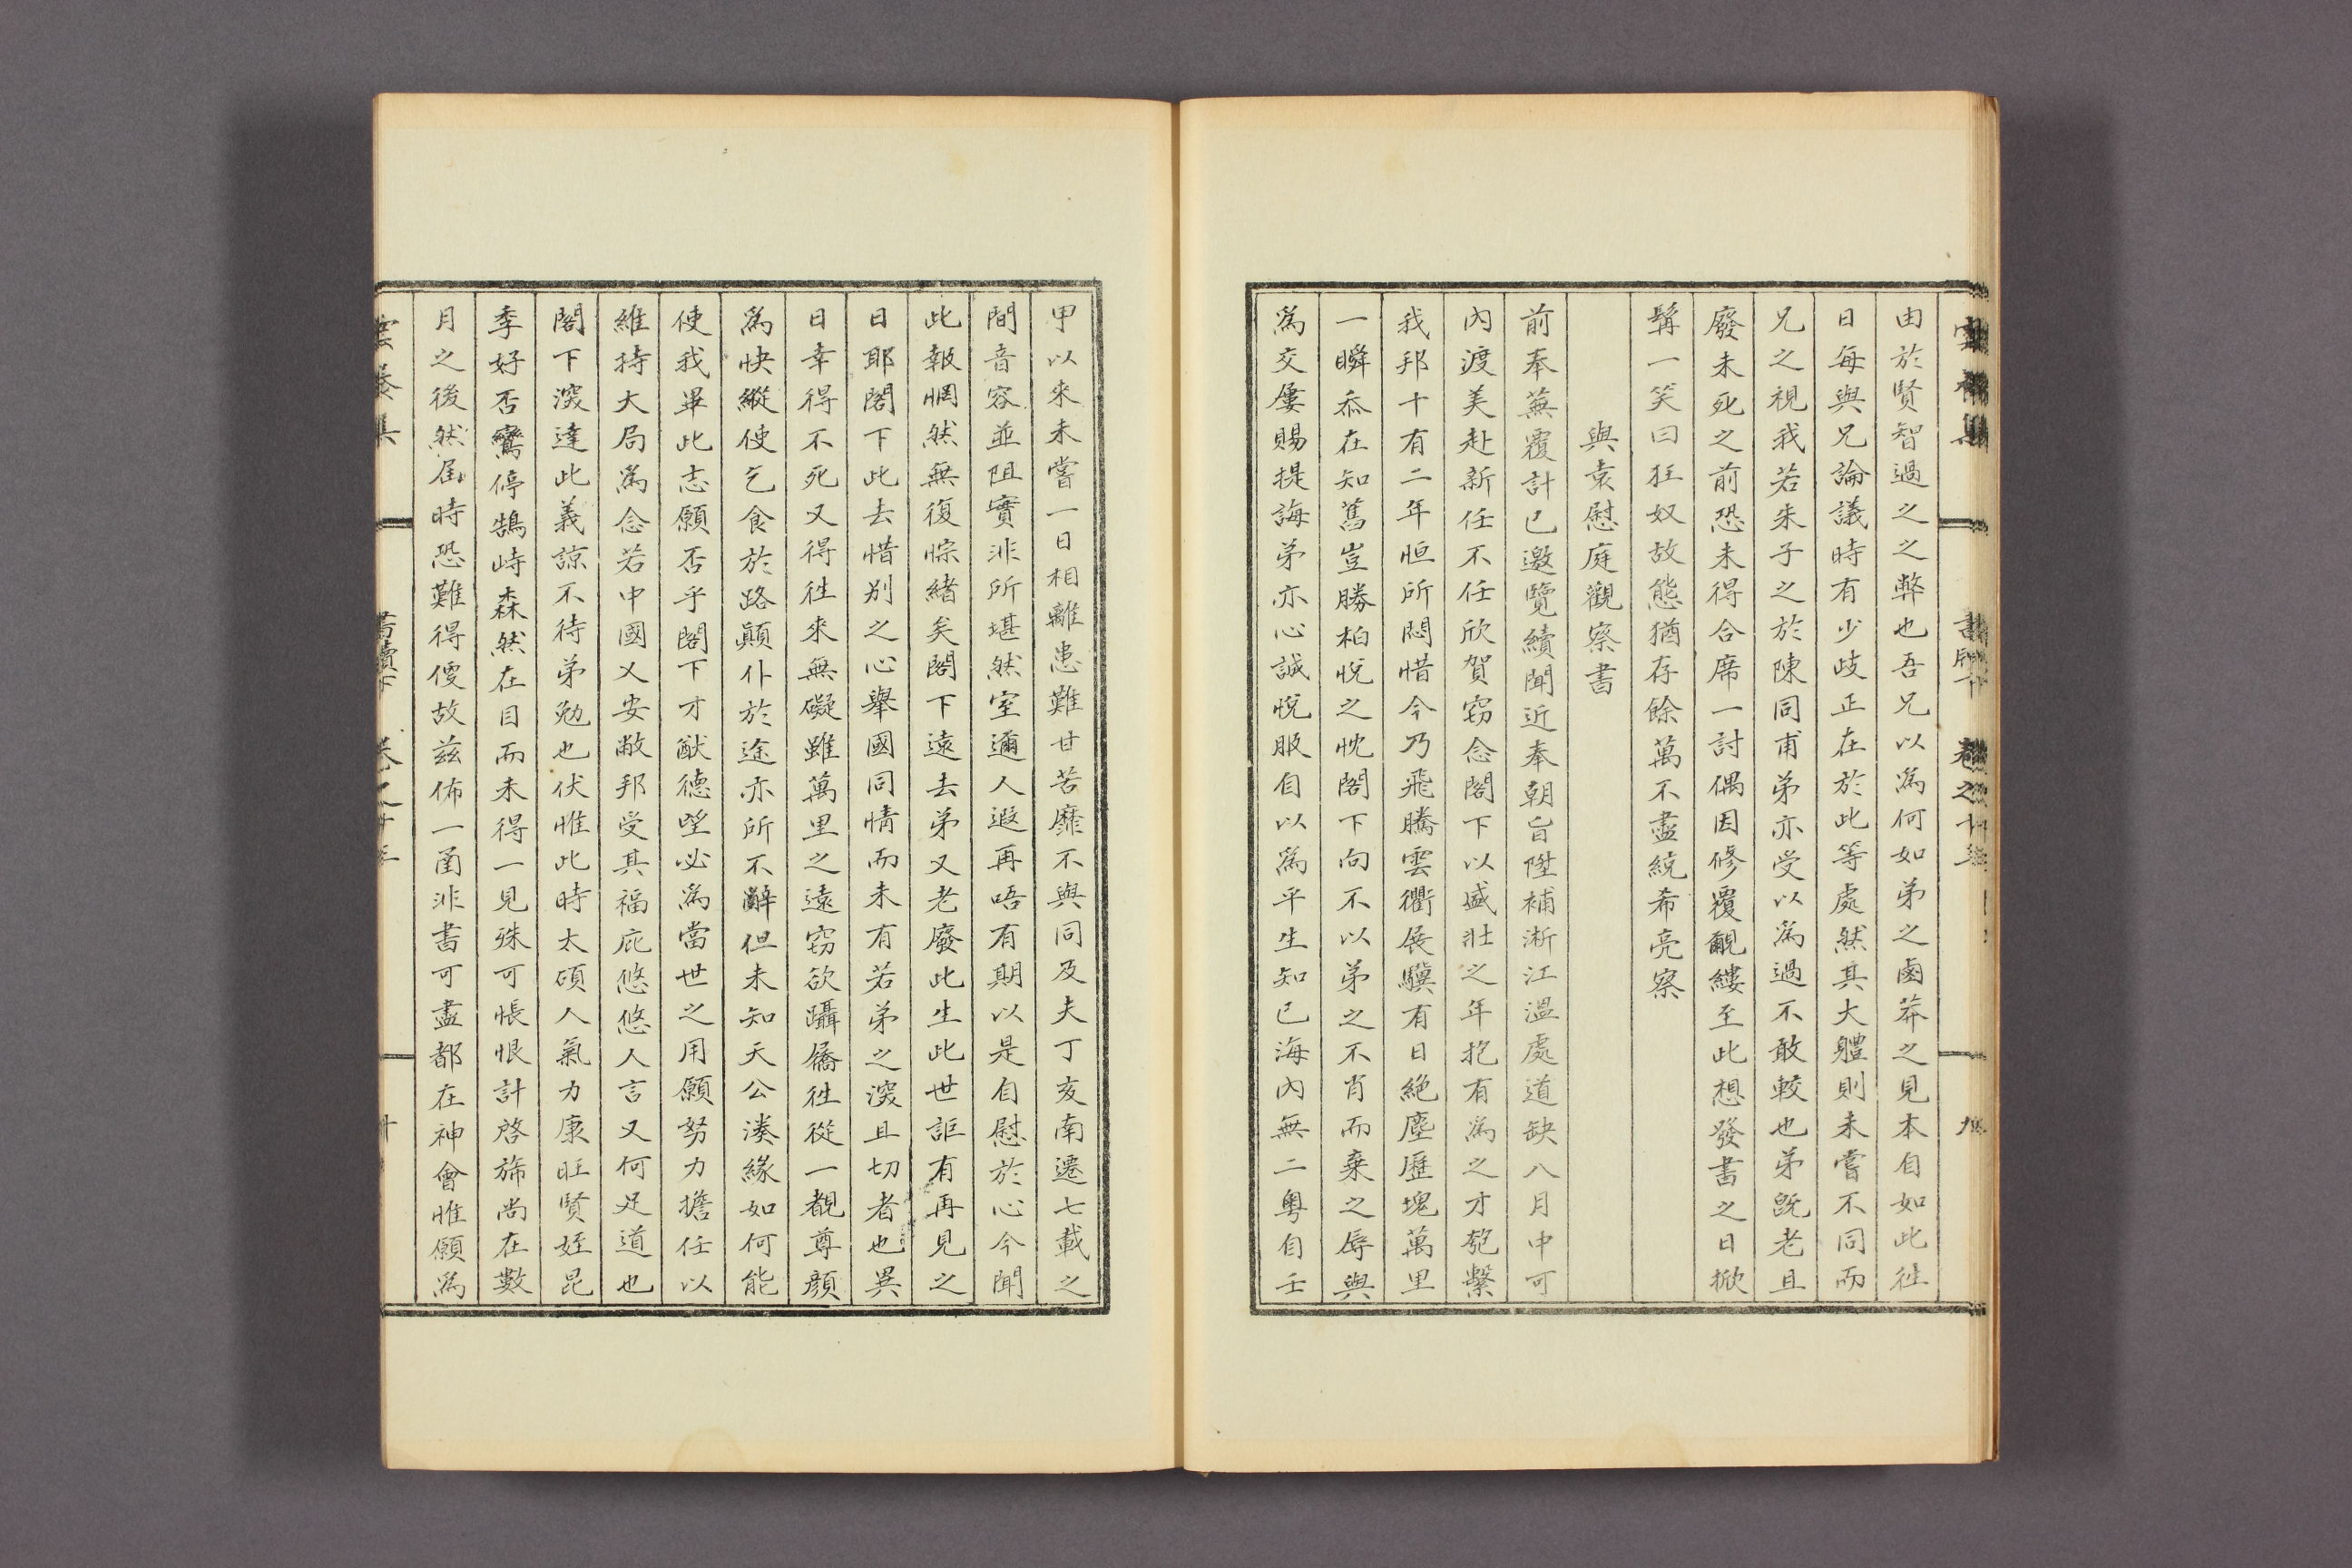 由於賢智過之之弊也吾兄以爲何如弟之鹵莽之見本自如此徃
日每與兄論議時有少歧正在於此等處然其大軆則未嘗不同而
兄之視我若朱子之於陳同甫弟亦受以爲過不敢較也弟旣老且
廢未死之前恐未得合席一討偶因修覆覼縷至此想發書之日掀
髯一笑曰狂奴故態猶存餘萬不盡統希亮察
與袁慰庭觀察書
前奉蕪覆計已邀覽續聞近奉朝旨陞補浙江溫處道缺八月中可
內渡美赴新任不任欣賀窃念閣下以盛壯之年抱有爲之才匏繫
我邦十有二年恒所悶惜今乃飛騰雲衢展驥有日絶塵歷塊萬里
一瞬忝在知舊豈勝柏悅之忱閣下向不以弟之不肖而棄之辱與
爲交屢賜提誨弟亦心誠悅服自以爲平生知已海內無二粤自壬
甲以來未嘗一日相離患難甘苦靡不與同及夫丁亥南遷七載之
間音容並阻實非所堪然室邇人遐再唔有期以是自慰於心今聞
此報惘然無復悰緖矣閣下遠去弟又老廢此生此世詎有再見之
日耶閣下此去惜别之心舉國同情而未有若弟之深且切者也異
日幸得不死又得徃來無礙雖萬里之遠窃欲躡屩徃從一覩尊顔
爲快縱使乞食於路顚仆於途亦所不辭但未知天公湊緣如何能
使我畢此志願否乎閣下才猷德望必爲當世之用願努力擔任以
維持大局爲念若中國乂安敝邦受其福庇悠悠人言又何足道也
閣下深達此義諒不待弟勉也伏惟此時太碩人氣力康旺賢姪昆
季好否鸞停鵠峙森然在目而未得一見殊可悵恨計啓旆尙在數
月之後然屆時恐難得便故玆佈一函非書可盡都在神會惟願爲